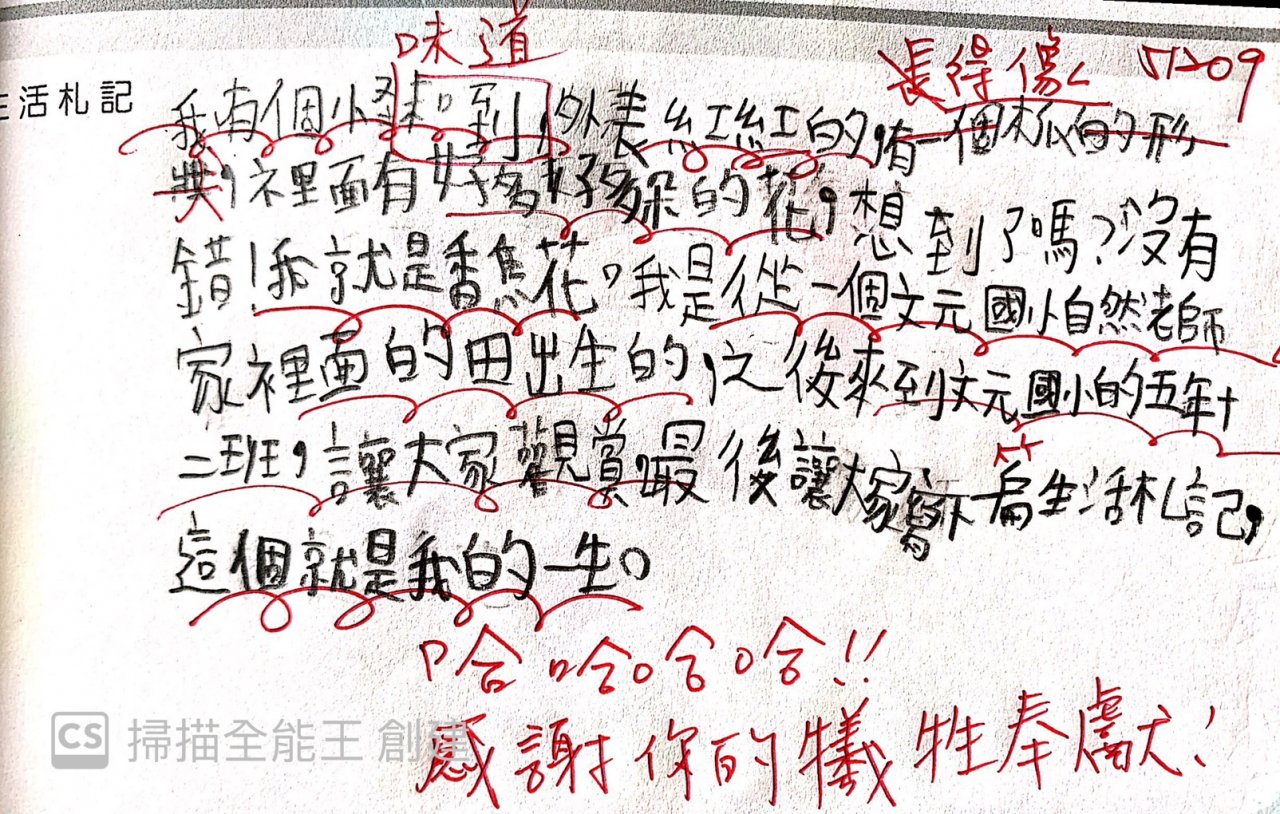 味道
長得像 51209
生活札記
我有個小到,外表紅紅的,有一個木瓜的形
狀,裡面有好多好多朵的花,想到了嗎?沒有
錯!我就是香蕉花。我是從一個文元國小自然老師
家裡面的田出生的,之後來到文元國小的五年十
二班,讓大家觀賞,最後讓大家寫下一篇生活札記,
這個就是我的一生。
哈哈哈哈!!
感謝你的犧牲奉獻!
CS 掃描全能王 創建